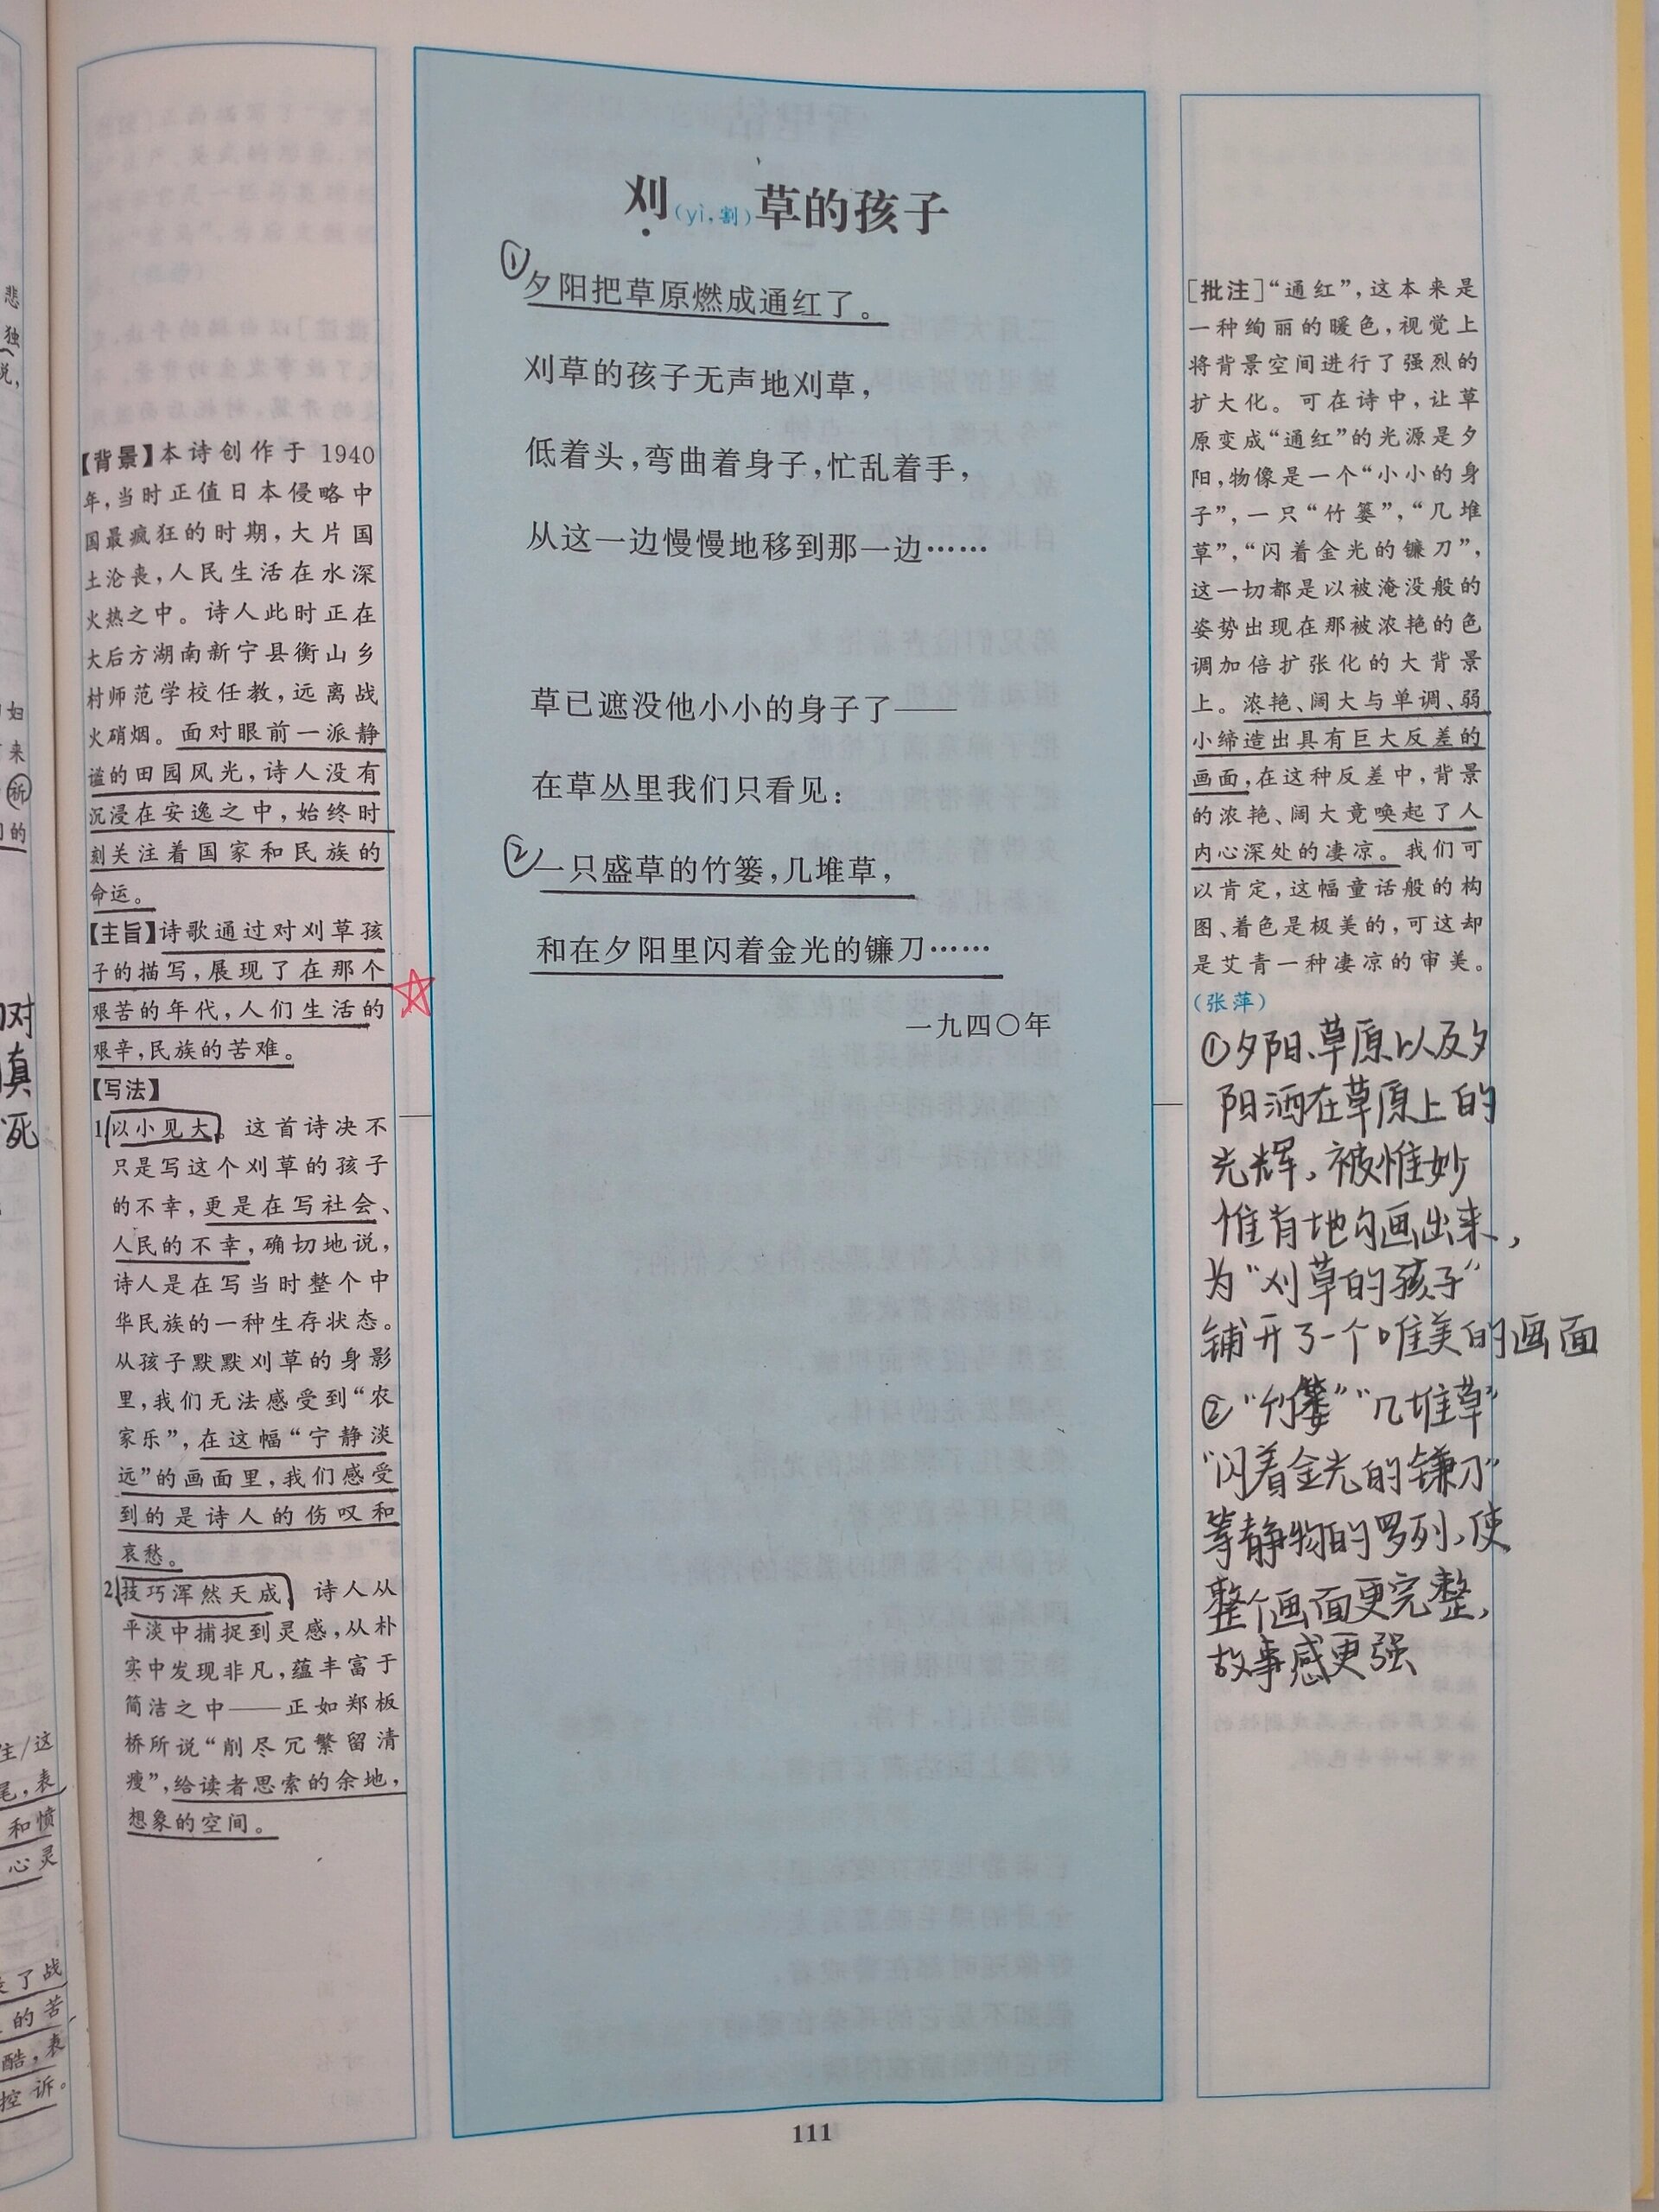 刈(yì,割)草的孩子
①夕阳把草原燃成通红了。
刈草的孩子无声地刈草，
低着头，弯曲着身子，忙乱着手，
从这一边慢慢地移到那一边……
草已遮没他小小的身子了——
在草丛里我们只看见：
②一只盛草的竹篓，几堆草，
和在夕阳里闪着金光的镰刀……
一九四〇年
【背景】本诗创作于 1940
年，当时正值日本侵略中
国最疯狂的时期，大片国
土沦丧，人民生活在水深
火热之中。诗人此时正在
大后方湖南新宁县衡山乡
村师范学校任教，远离战
火硝烟。面对眼前一派静
谧的田园风光，诗人没有
沉浸在安逸之中，始终时
刻关注着国家和民族的
命运。
【主旨】诗歌通过对刈草孩
子的描写，展现了在那个
艰苦的年代，人们生活的
艰辛，民族的苦难。
【写法】
1.以小见大。这首诗决不
只是写这个刈草的孩子
的不幸，更是在写社会、
人民的不幸，确切地说，
诗人是在写当时整个中
华民族的一种生存状态。
从孩子默默刈草的身影
里，我们无法感受到“农
家乐”，在这幅“宁静淡
远”的画面里，我们感受
到的是诗人的伤叹和
哀愁。
2.技巧浑然天成。诗人从
平淡中捕捉到灵感，从朴
实中发现非凡，蕴丰富于
简洁之中——正如郑板
桥所说“削尽冗繁留清
瘦”，给读者思索的余地，
想象的空间。
[批注]“通红”，这本来是
一种绚丽的暖色，视觉上
将背景空间进行了强烈的
扩大化。可在诗中，让草
原变成“通红”的光源是夕
阳，物像是一个“小小的身
子”，一只“竹篓”，“几堆
草”，“闪着金光的镰刀”，
这一切都是以被淹没般的
姿势出现在那被浓艳的色
调加倍扩张化的大背景
上。浓艳、阔大与单调、弱
小缔造出具有巨大反差的
画面，在这种反差中，背景
的浓艳、阔大竟唤起了人
内心深处的凄凉。我们可
以肯定，这幅童话般的构
图、着色是极美的，可这却
是艾青一种凄凉的审美。
（张萍）
①夕阳、草原以及夕
阳洒在草原上的
光辉，被惟妙
惟肖地勾画出来，
为“刈草的孩子”
铺开了一个唯美的画面
②“竹篓”“几堆草”
“闪着金光的镰刀”
等静物的罗列，使
整个画面更完整，
故事感更强
111
悲
独
说，
妇
来
祈
的
对
真
死
住/这
尾，表
和愤
心灵
了战
的苦
酷，表
控诉。